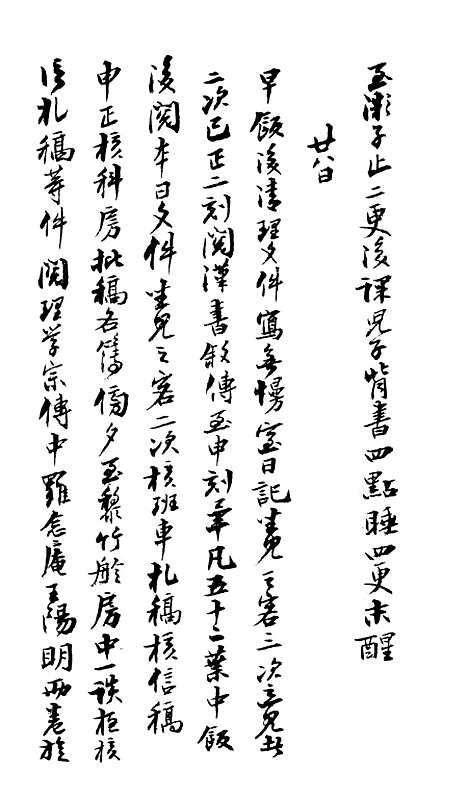 至漸子止二更後課兒子背書四點睡四更末醒
廿八日
早飯後清理文件寫無慢室日記坐見之客三次立見者
二次巳正二刻閱漢書敘傳至申刻畢凡五十二葉中飯
後閱本日文件坐見之客二次核班車札稿核信稿
申正核科房批稿各簿傍夕至黎竹舲房中一談夜核
信札稿等件閱理學宗傳中羅念庵王陽明兩卷於